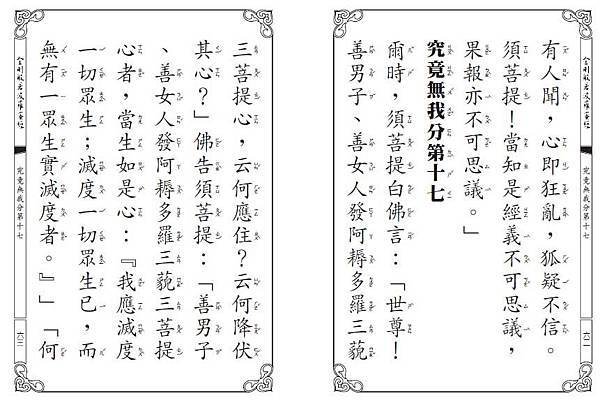 有人聞，心即狂亂，狐疑不信。
須菩提！當知是經義不可思議，
果報亦不可思議。」
究竟無我分第十七
爾時，須菩提白佛言：「世尊！
善男子、善女人發阿耨多羅三藐
金剛般若波羅蜜經
究竟無我分第十七
六一
三菩提心，云何應住？云何降伏
其心？」佛告須菩提：「善男子
、善女人發阿耨多羅三藐三菩提
心者，當生如是心：『我應滅度
一切眾生；滅度一切眾生已，而
無有一眾生實滅度者。』」「何
金剛般若波羅蜜經
究竟無我分第十七
六二